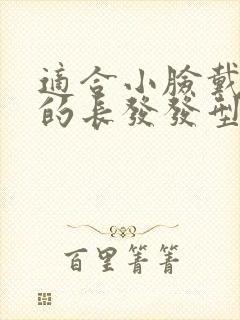 適合小臉戴
的長發發型
百里菁菁